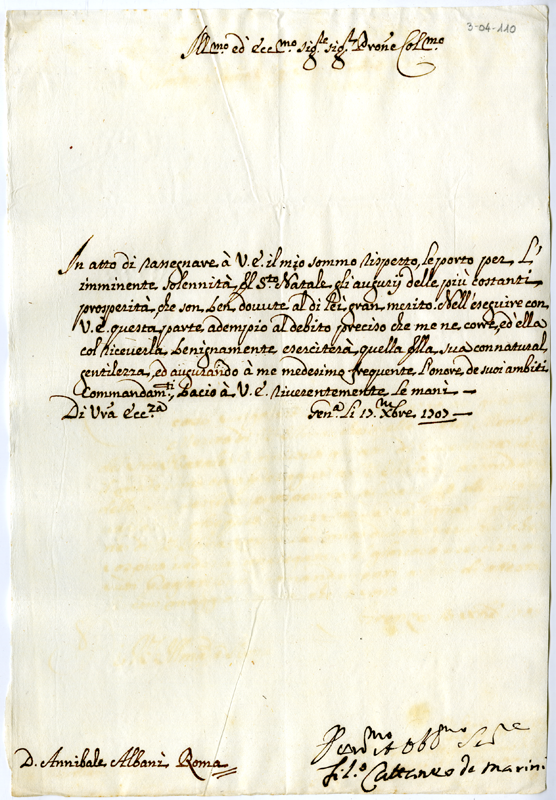 3-04-110
Ill.mo ed Ecc.mo Sig.re Sig.r Prone Col.mo
In atto di rassegnare à V.E. il mio sommo rispetto, le porto per l'
imminente solennità del S.to Natale gli augurij delle più costanti
prosperità, che son ben dovute al di Lei gran merito. Nell'eseguire con
V.E. questa parte adempio al debito preciso che me ne corre, ed ella
col riceverla benignamente esercitera quella della sua connatural
gentilezza, ed augurando à me medesimo frequente l'onore de suoi ambiti
Commandam.ti, bacio à V.E. riverentemente le mani —
Di Vrã Ecc.za Gen.a li 17 Xbre 1707 —
Obb.mo Se.re
Fil.o Cattaneo de Marini
D. Annibale Albani Roma